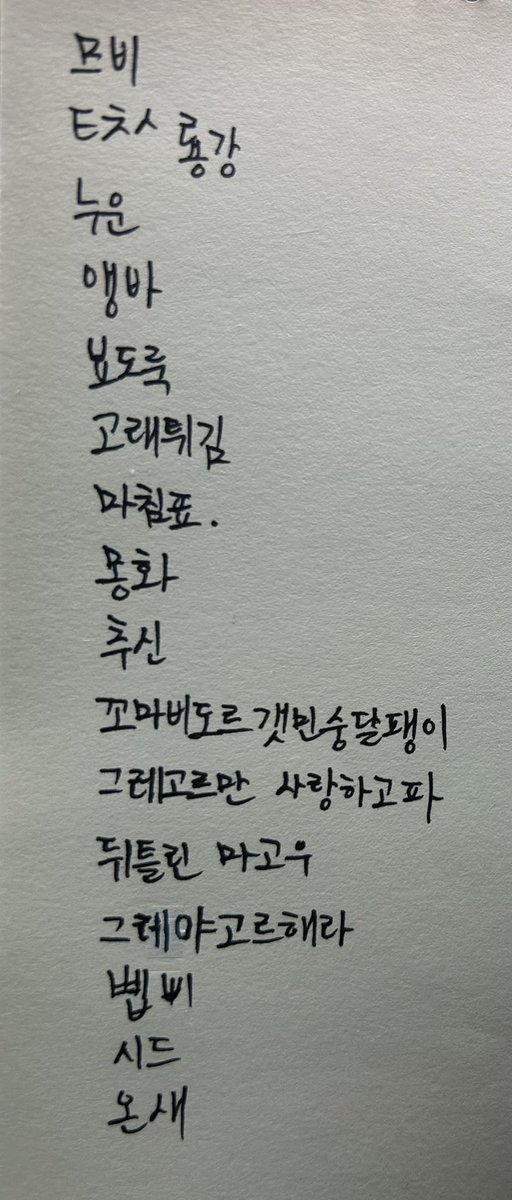 므비
E츳ㅅ 룡강
누운
앵바
뵤도룩
고래튀김
마침표.
몽화
추신
꼬마비도르갯민숭달팽이
그레고르만 사랑하고파
뒤틀린 마고우
그레야고르해라
삡삐
시드
온새